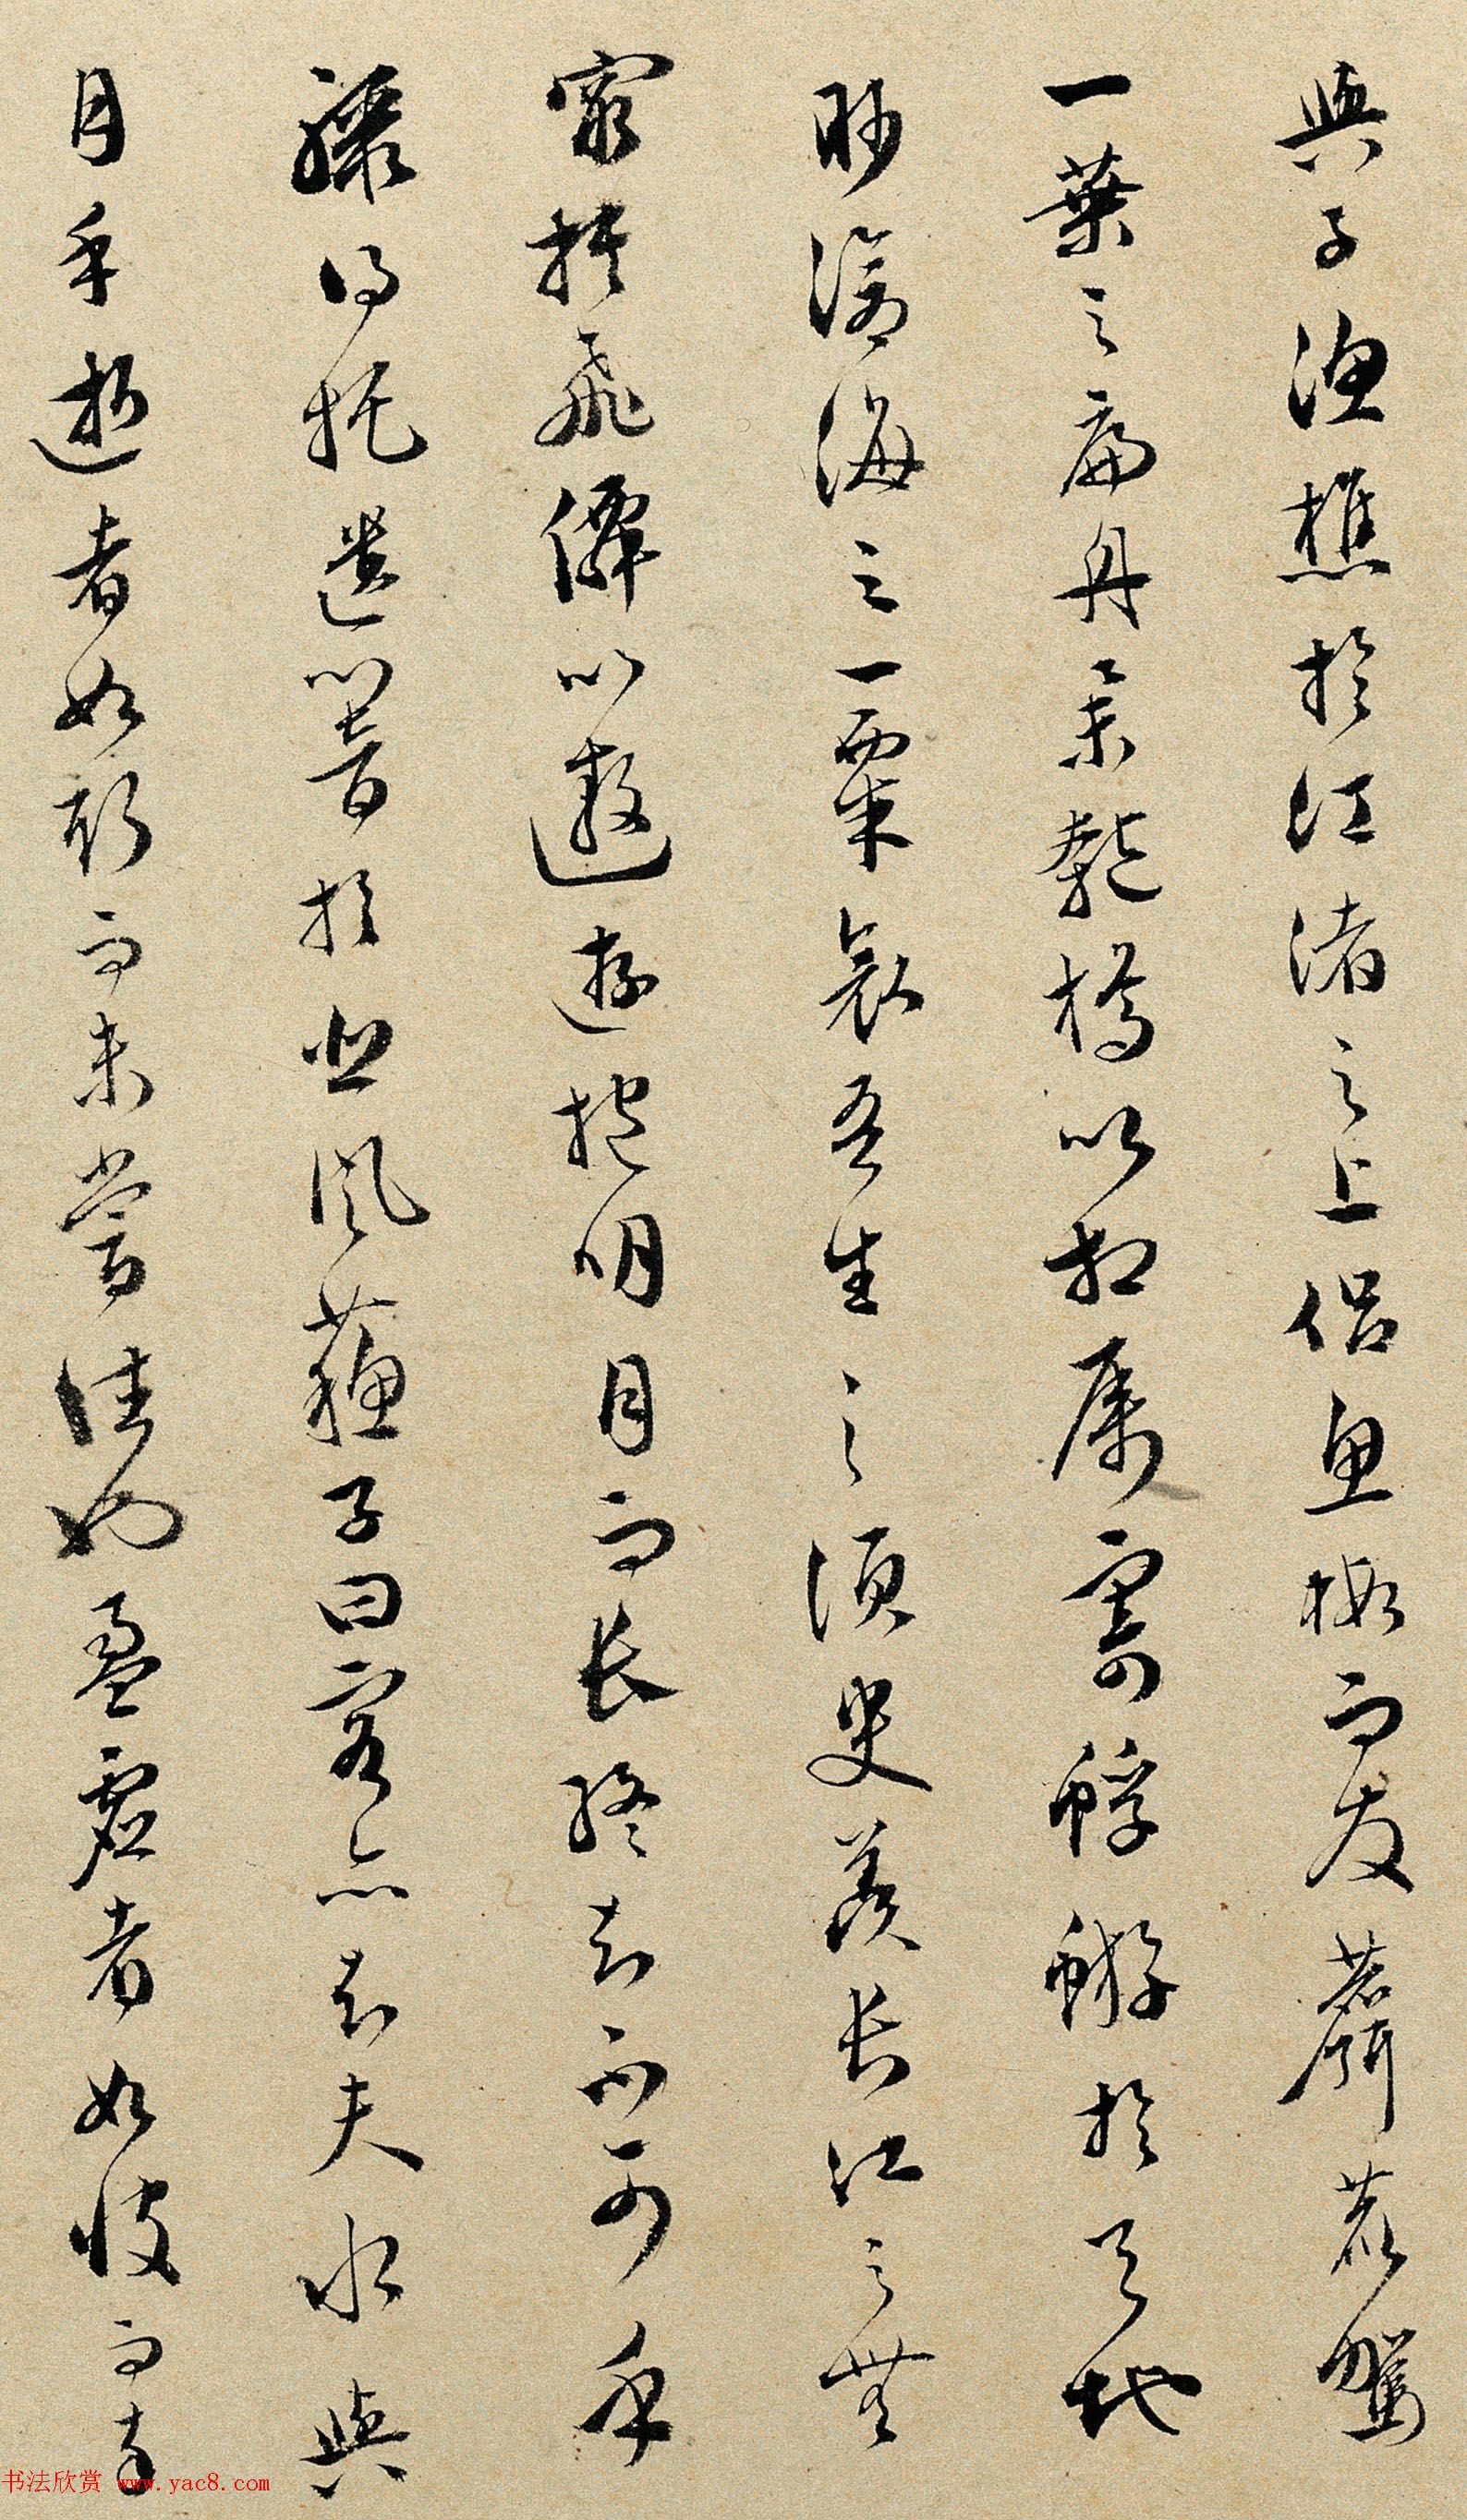 與子漁樵於江渚之上侶魚蝦而友麋鹿駕
一葉之扁舟舉匏樽以相屬寄蜉蝣於天地
眇滄海之一粟哀吾生之須臾羨長江之無
窮挾飛僊以遨遊抱明月而長終知不可乎
驟得托遺響於悲風蘇子曰客亦知夫水與
月乎逝者如斯而未嘗往也盈虛者如彼而卒
书法欣赏 www.yac8.com